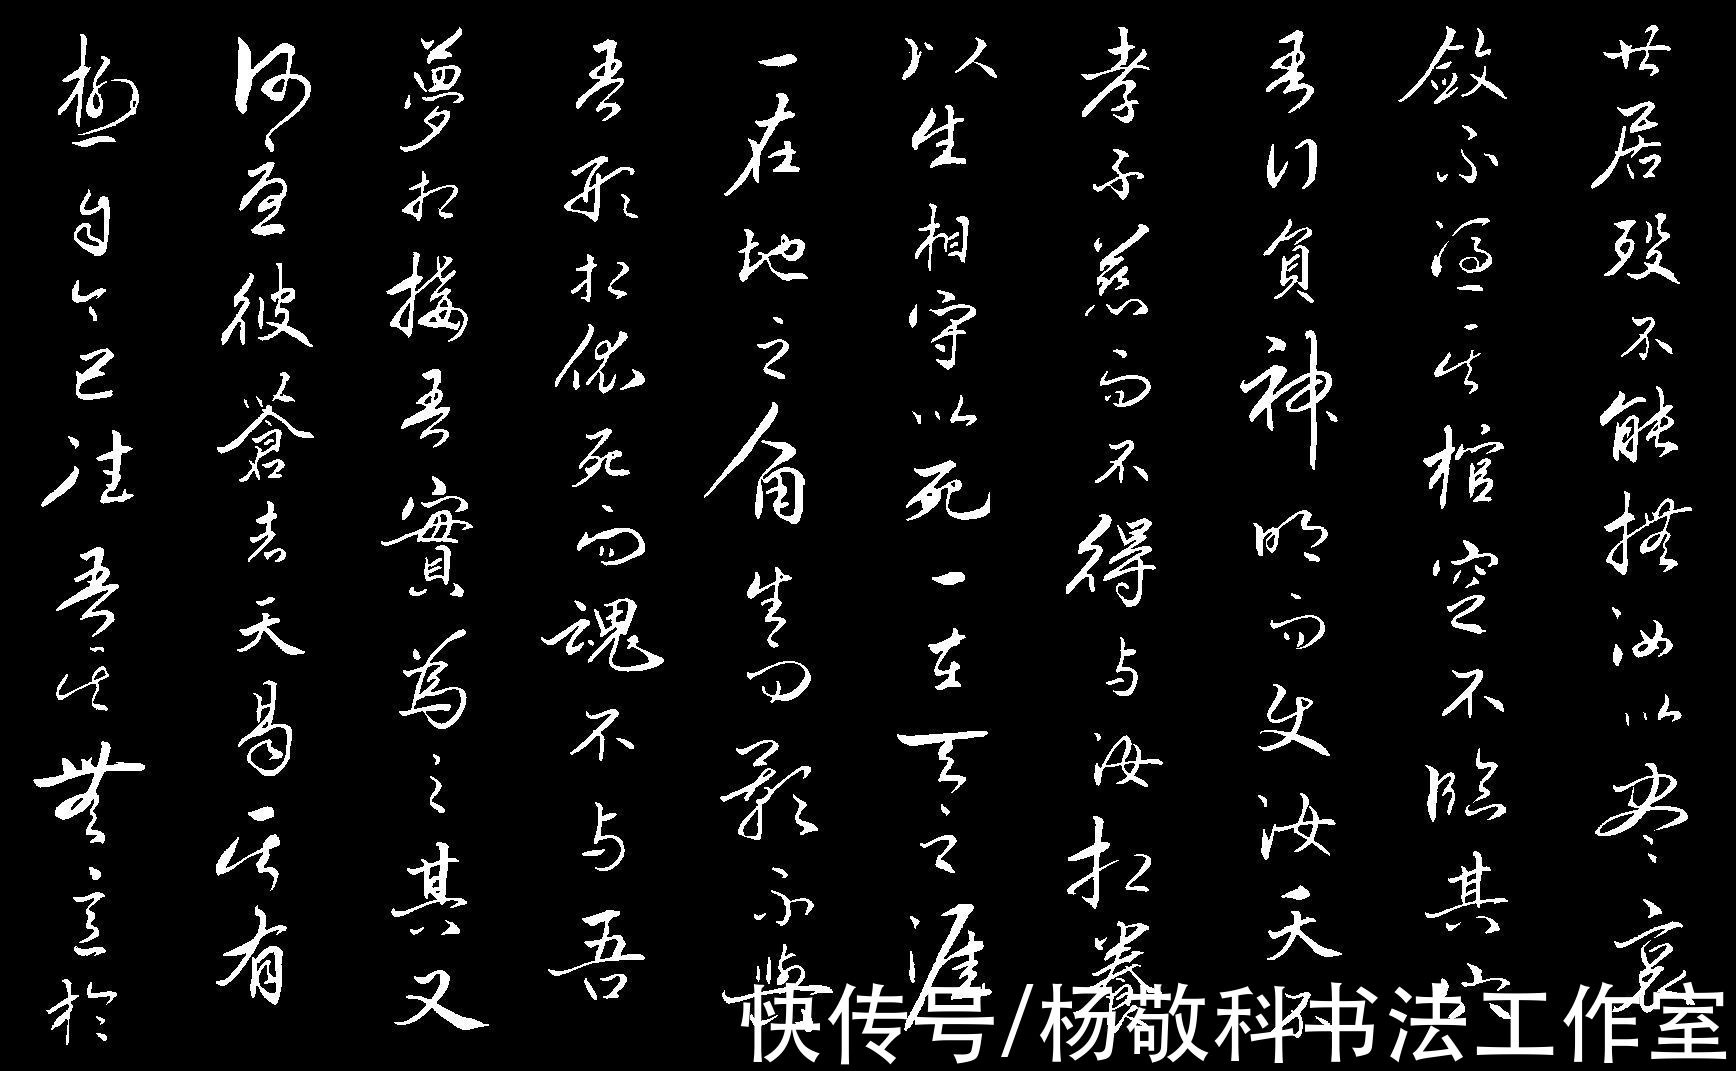 共居歿不能撫汝以尽哀
斂不憑其棺窆不臨其穴
吾行負神明而使汝夭不
孝不慈而不得与汝相養
以生相守以死一在天之涯
一在地之角生而影不與
吾形相依死而魂不与吾
夢相接吾實為之其又
何尤彼蒼者天曷其有
極自今已往吾其無意於
快传号/杨敬科书法工作室